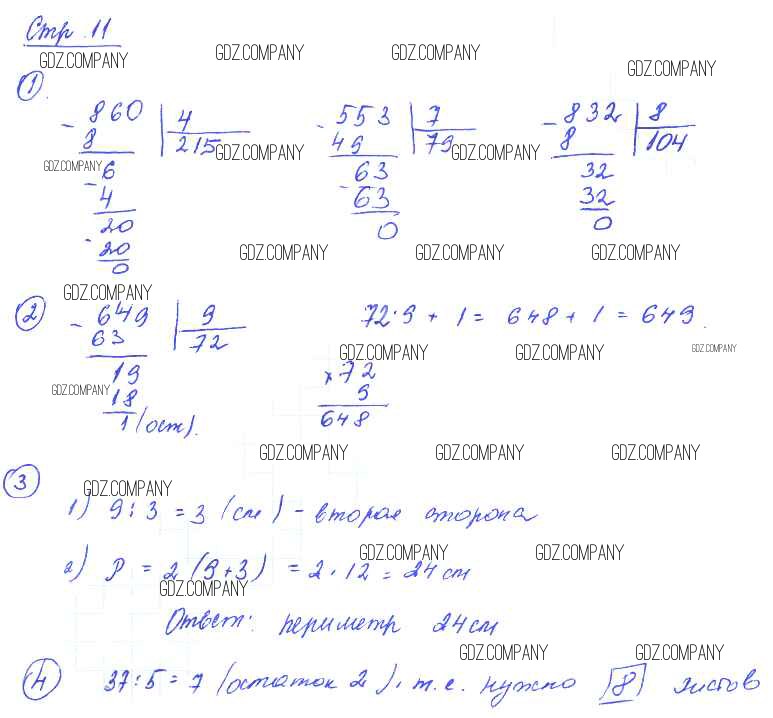 Стр. 11
GDZ.COMPANY GDZ.COMPANY GDZ.COMPANY GDZ.COMPANY
①
- 860 | 4
8 | 215
GDZ.COMPANY
- 6
4
20
- 20
0
- 553 | 7
49 | 79
GDZ.COMPANY
63
- 63
0
- 832 | 8
8 | 104
GDZ.COMPANY
32
32
0
GDZ.COMPANY GDZ.COMPANY GDZ.COMPANY
GDZ.COMPANY
②
- 649 | 9
63 | 72
19
GDZ.COMPANY 18
1 (ост).
72·9 + 1 = 648 + 1 = 649.
GDZ.COMPANY GDZ.COMPANY GDZ.COMPANY
× 72
9
648
GDZ.COMPANY GDZ.COMPANY GDZ.COMPANY
③
GDZ.COMPANY
1) 9 : 3 = 3 (см) - вторая сторона
GDZ.COMPANY GDZ.COMPANY
2) P = 2 (9+3) = 2 · 12 = 24 см
GDZ.COMPANY
Ответ: периметр 24 см
GDZ.COMPANY GDZ.COMPANY
④ 37:5 = 7 (остаток 2), т.е. нужно 8 листов